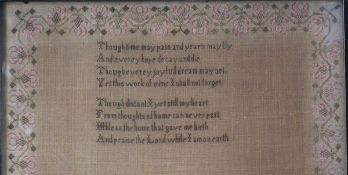 Though time may pass and years may fly
And every hope decay and die
Though every joyful dream may set
Yet this work of mine I shall not forget
Though distant I yet still my heart
From thoughts of home can never part
the hour that gave me birth
And praise the Lord while I am on earth